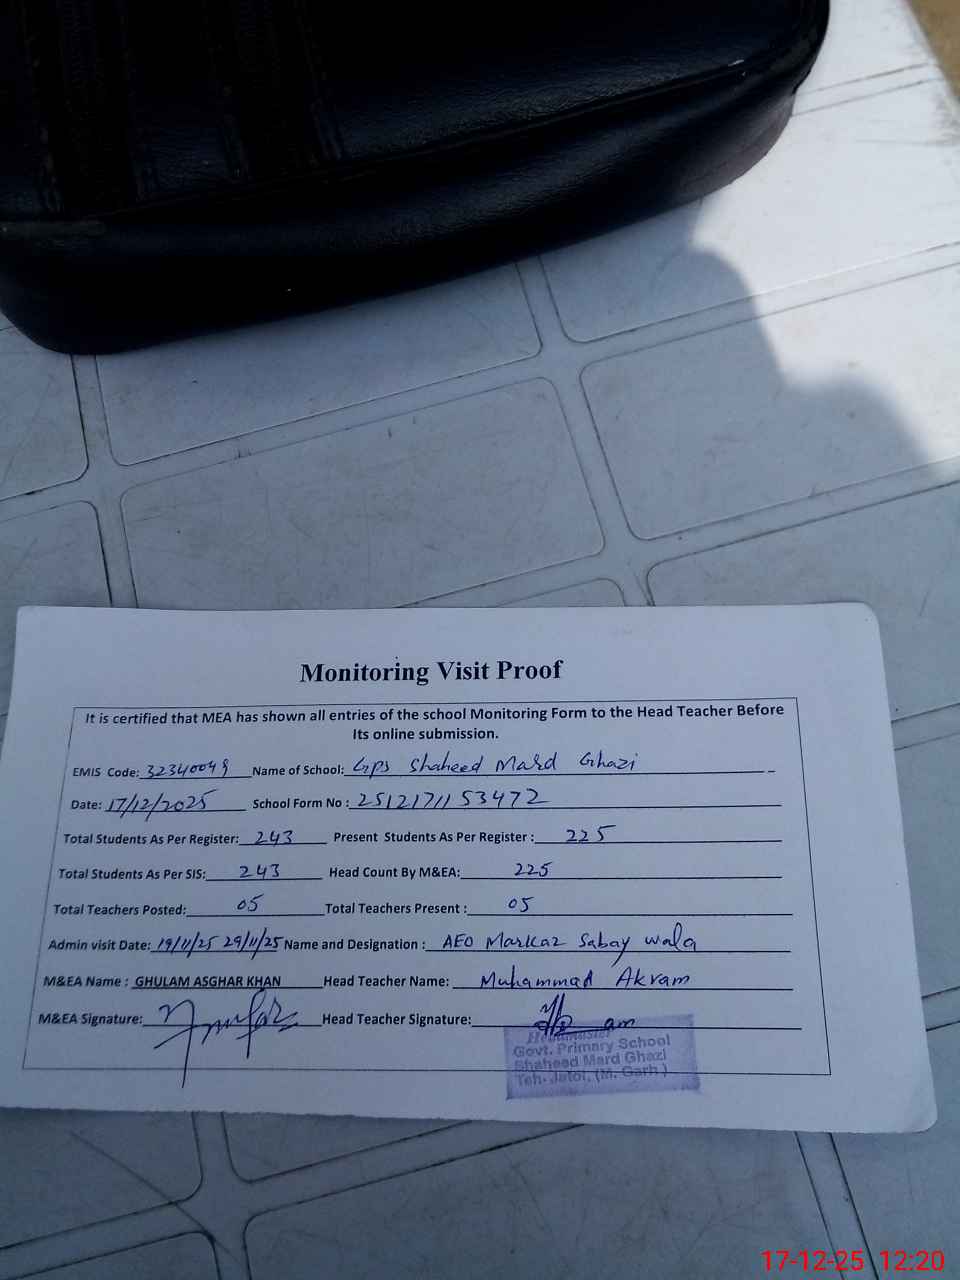 Monitoring Visit Proof
It is certified that MEA has shown all entries of the school Monitoring Form to the Head Teacher Before
Its online submission.
EMIS Code: 32340049 Name of School: Gps Shaheed Mard Ghazi
Date: 17/12/2025 School Form No : 25121711 53472
Total Students As Per Register: 243 Present Students As Per Register : 225
Total Students As Per SIS: 243 Head Count By M&EA: 225
Total Teachers Posted: 05 Total Teachers Present : 05
Admin visit Date: 19/11/25 29/11/25 Name and Designation : AEO Markaz Sabay wala
M&EA Name : GHULAM ASGHAR KHAN Head Teacher Name: Muhammad Akram
M&EA Signature: Head Teacher Signature:
Headmaster
Govt. Primary School
Shaheed Mard Ghazi
Teh. Jatoi, (M. Garh )
17-12-25 12:20